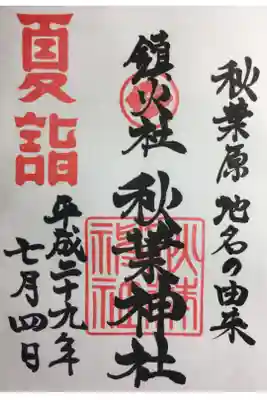 秋葉原地名の由来
鎮火社
秋葉神社
夏詣
平成二十九年
七月四日